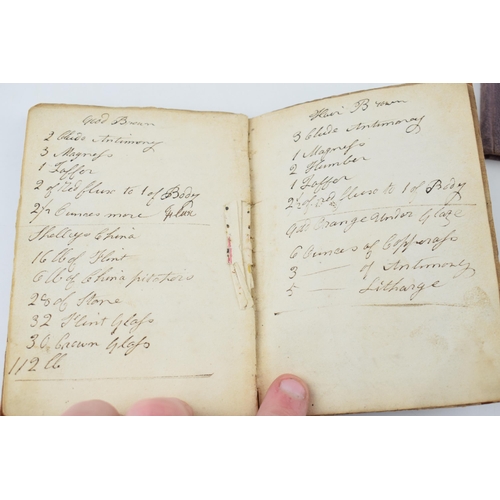 Good Brown
2 Clide Antimoney
3 Magness
1 Zaffor
2 of red flux to 1 of Body
2½ Ounces more
Shelleys China
16 lb of Flint
6 lb of China pitchers
28 of Stone
32 Flint Glass
30 Crown Glass
112 lb
Hair Brown
3 Clide Antimoney
1 Magness
2 Humber
1 Zaffor
2½ of red flux to 1 of Body
Orange Under Glaze
6 Ounces of Copperass
3 — of Antimoney
5 — Litharge